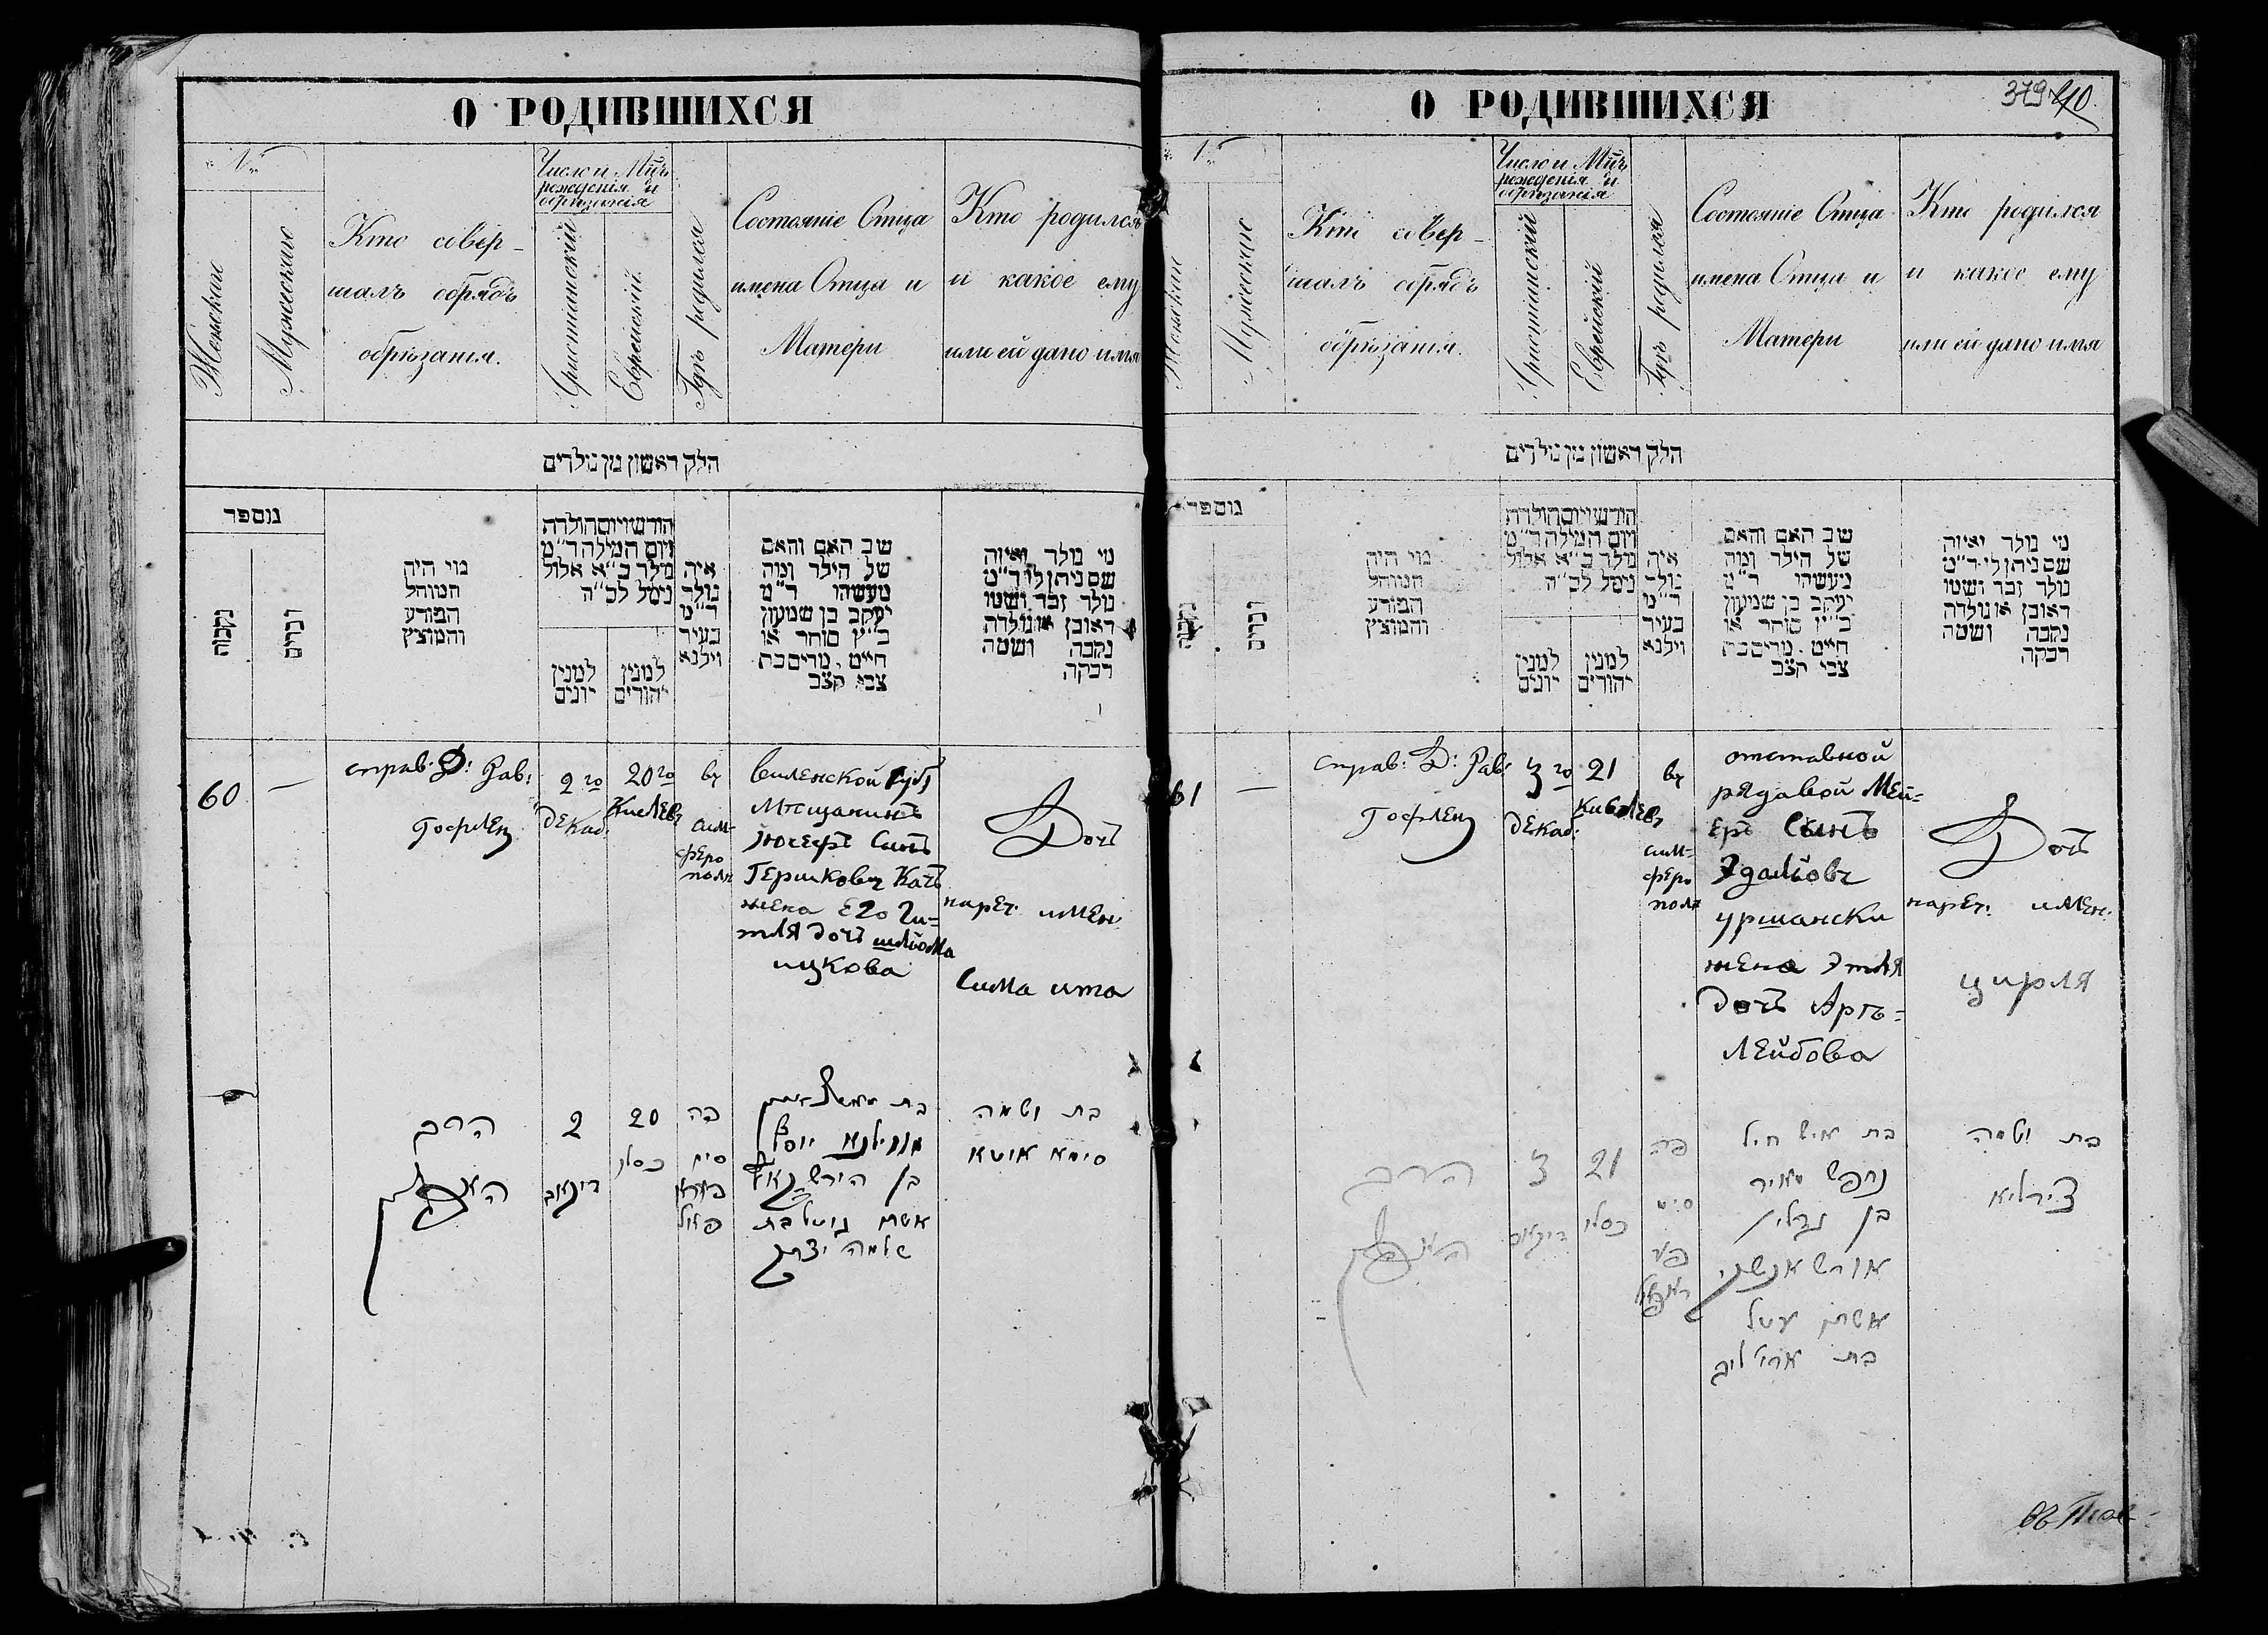 О РОДИВШИХСЯ
№
Женскаго
Мужескаго
Кто совер-
шалъ обрядъ
обрѣзанія.
Число и Мцъ
рожденія и
обрѣзанія
Христіанскій
Еврейскій
Гдѣ родился
Состояніе Отца
имена Отца и
Матери
Кто родился
и какое ему
или ей дано имя
חלק ראשון מן נולדים
מוספר
נקבות
זכרים
מוי היה
המוהל
הפורע
והמוצץ
חודש ויום הולדת
ויום המילה ר"מ
נולד כ"א אלול
נימל לכ"ה
למנין
יונים
למנין
יהודים
איה
נולד
ר"מ
בעיר
וילנא
שב האם והאם
של הילד ומה
מעשיהו ר"מ
יעקב בן שמעון
כ"ץ סוחר או
חייט. מרים בת
צבי קצב
מי נולד ואיזה
שם ניתן לו ר"מ
נולד זכר ושמו
ראובן או נולדה
נקבה ושמה
רבקה
60
—
справ. Д: Рав:
Гофленъ
2го
декаб:
20го
Кислевъ
въ
сим-
феро
полѣ
Виленской Губ:
Мѣщанинъ
Іосефъ Сынъ
Гершковъ Кацъ
жена Его Ги-
тля дочь шліома
ицкова
Дочь
нареч. имен.
Сима ита
הרב
2
דיקאב
20
כסלו
פה
סימ
פערא
פאל
יוסף
בן הירש קאץ
אשתו גיטל בת
שלמה יצחק
בת ושמה
סימא איטא
О РОДИВШИХСЯ
379 40
№
Женскаго
Мужескаго
Кто совер-
шалъ обрядъ
обрѣзанія.
Число и Мцъ
рожденія и
обрѣзанія
Христіанскій
Еврейскій
Гдѣ родился
Состояніе Отца
имена Отца и
Матери
Кто родился
и какое ему
или ей дано имя
חלק ראשון מן נולדים
מוספר
נקבות
זכרים
מוי היה
המוהל
הפורע
והמוצץ
חודש ויום הולדת
ויום המילה ר"מ
נולד כ"א אלול
נימל לכ"ה
למנין
יונים
למנין
יהודים
איה
נולד
ר"מ
בעיר
וילנא
שב האם והאם
של הילד ומה
מעשיהו ר"מ
יעקב בן שמעון
כ"ץ סוחר או
חייט. מרים בת
צבי קצב
מי נולד ואיזה
שם ניתן לו ר"מ
נולד זכר ושמו
ראובן או נולדה
נקבה ושמה
רבקה
61
—
справ: Д: Рав:
Гофленъ
3го
декаб:
21
Кислевъ
въ
сим-
феро
полѣ
отставной
рядовой Мей-
еръ Сынъ
Эдаліовъ
уршански
жена Этля
дочь Аръ-
Лейбова
Дочь
нареч: имен:
цирля
הרב
3
דיקאב
21
כסלו
פה
סימ
בת איש חיל
מאיר
בן גדליו
אורשאנסקי
אשתו עטל
בת ארי ליב
בת ושמה
צירליא